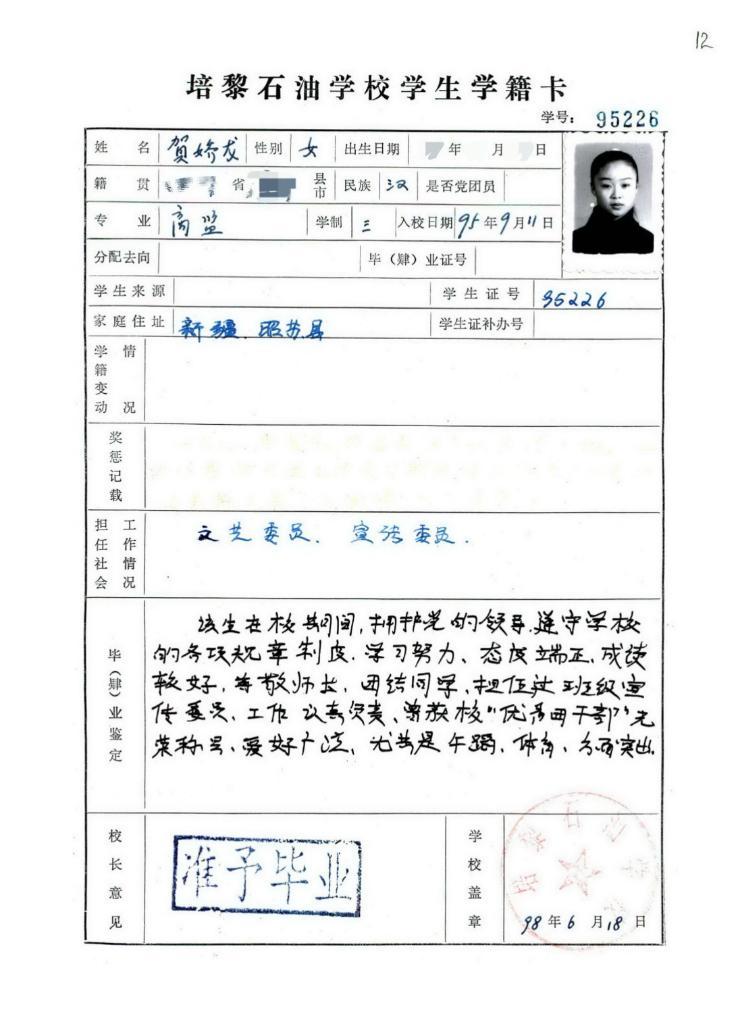 12
培黎石油学校学生学籍卡
学号: 95226
姓名 贺娇龙 性别 女 出生日期 年 月 日
籍贯 省 县市 民族 汉 是否党团员
专业 商监 学制 三 入校日期 95年9月11日
分配去向 毕(肄)业证号
学生来源 学生证号 95226
家庭住址 新疆.昭苏县 学生证补办号
学籍变动情况
奖惩记载
担任社会工作情况 文艺委员、宣传委员.
毕(肄)业鉴定
该生在校期间,拥护党的领导.遵守学校
的各项规章制度.学习努力、态度端正.成绩
较好,尊敬师长,团结同学,担任过班级宣
传委员、工作认真负责、曾获校"优秀团干部"光
荣称号、爱好广泛、尤其是午蹈、体育、方面突出.
校长意见 准予毕业
学校盖章 培黎石油学校
98年6月18日